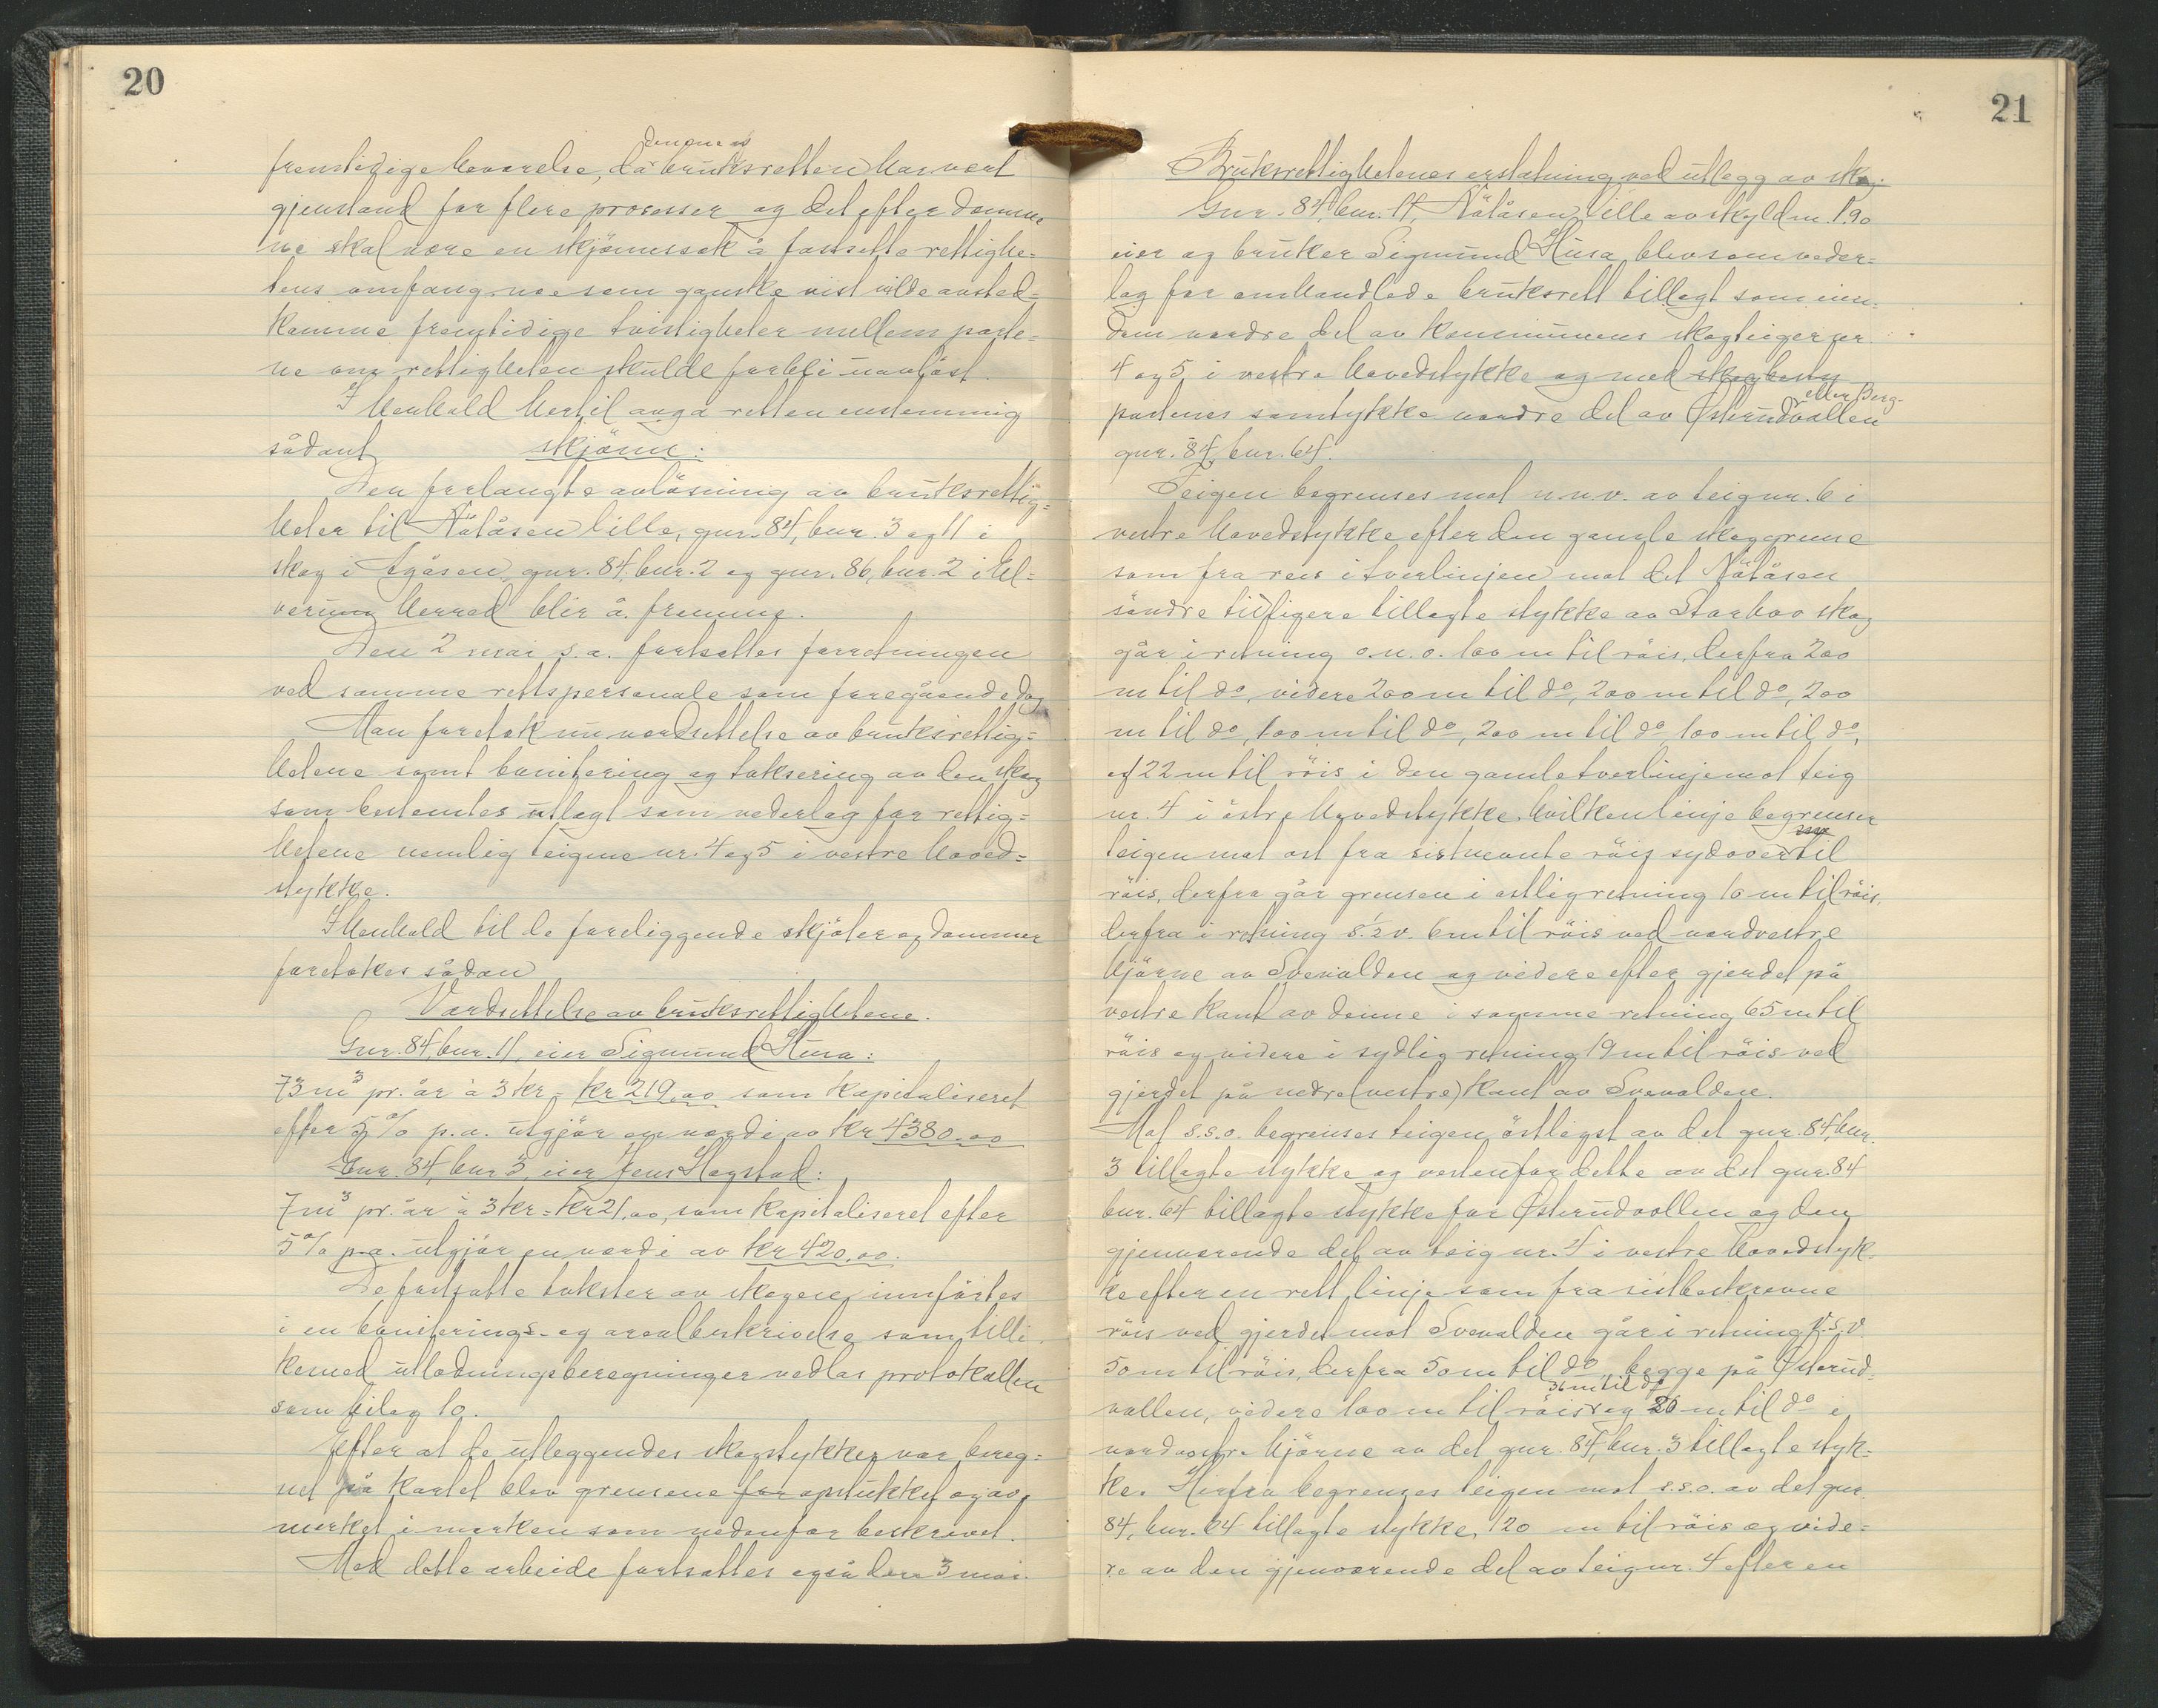 20
denne
fremtidige bevarelse, da bruksretten har vært
gjenstand for flere prosesser og det efter dommene
ne skal være en skjönnssak å fastsette rettighe=
tens omfang, noe som ganske vist vilde avsted=
komme fremtidige tvistigheter mellem parte=
ne om rettigheten skulde forbli uavlöst.
I henhold hertil avga retten enstemmig
sådant skjönn:
Den forlangte avlösning av bruksrettig=
heter til Nötåsen lille, gnr. 84, bnr. 3 og 11 i
skog i Agåsen, gnr. 84, bnr. 2 og gnr. 86, bnr. 2 i El=
verum herred blir å fremme.
Den 2 mai s.a. fortsattes forretningen
ved samme rettspersonale som foregående dag
Man foretok nu verdsettelse av bruksrettig=
hetene samt bonitering og taksering av den skog
som bestemtes utlagt som vederlag for rettig=
hetene nemlig teigene nr. 4 og 5 i vestre hoved=
stykke.
I henhold til de foreliggende skjöter og dommer
foretokes sådan
Verdsettelse av bruksrettighetene.
Gnr. 84, bnr. 11, eier Sigmund Husa:
73 m³ pr. år à 3 kr = kr 219,00 som kapitaliseret
efter 5 % p.a. utgjör en verdi av kr 4380.00
Gnr. 84, bnr 3, eier Jens Hagstad:
7 m³ pr. år à 3 kr = kr 21.00, som kapitaliseret efter
5 % p.a. utgjör en verdi av kr 420.00.
De fastsatte takster av skogene innförtes
i en boniterings- og arealbeskrivelse som tilli
kemed utlodningsberegninger vedlas protokollen
som bilag 10.
Efter at de utleggendes skogstykker var bereg=
net på kartet blev grensene for opstukket og av
merket i marken som nedenfor beskrevet.
Med dette arbeide fortsattes også den 3 mai.
21
Bruksrettighetenes erstatning ved utlegg av skog.
Gnr. 84, bnr. 11, Nötåsen lille av skyldm. 1.90
eier og bruker Sigmund Husa blev som veder=
lag for omhandlede bruksrett tillagt som eien=
dom nordre del av kommunens skogteiger nr.
4 og 5 i vestre hovedstykke og med skogbesty
eller Berg-
partenes samtykke nordre del av Österudvollen
gnr. 84, bnr. 64.
Teigen begrenses mot n.n.v. av teig nr. 6 i
vestre hovedstykke efter den gamle skoggrense
som fra röis i tverlinjen mot det Nötåsen
söndre tidligere tillagte stykke av Storhov skog
går i retning o.n.o. 100 m til röis, derfra 200
m til do, videre 200 m til do, 200 m til do, 200
m til do, 100 m til do, 200 m til do 100 m til do,
og 22 m til röis i den gamle tverlinje mot teig
nr. 4 i östre hovedstykke, hvilken linje begrenser
teigen mot ost fra sistnevnte röis sydover til
röis, derfra går grensen i ostlig retning 16 m til röis,
derfra i retning s.½v. 6 m til röis ved nordvestre
hjörne av Svevolden og videre efter gjerdet på
vestre kant av denne i samme retning 65 m til
röis og videre i sydlig retning 19 m til röis ved
gjerdet på nedre (vestre) kant av Svevolden.
Mot s.s.o. begrenses teigen östligst av det gnr. 84, bnr.
3 tillagte stykke og vestenfor dette av det gnr. 84
bnr. 64 tillagte stykke for Österudvollen og den
gjenværende del av teig nr. 4 i vestre hovedstyk
ke efter en rett linje som fra sistbeskrevne
röis ved gjerdet mot Svevolden går i retning v.s.v.
50 m til röis, derfra 50 m til do, begge på Österud
36 m til do
vollen, videre 100 m til röis og 26 m til do i
nordvestre hjörne av det gnr. 84, bnr. 3 tillagte styk=
ke. Herfra begrenses teigen mot s.s.o. av det gnr.
84, bnr. 64 tillagte stykke, 120 m til röis og vide=
re av den gjenværende del av teig nr. 4 efter en